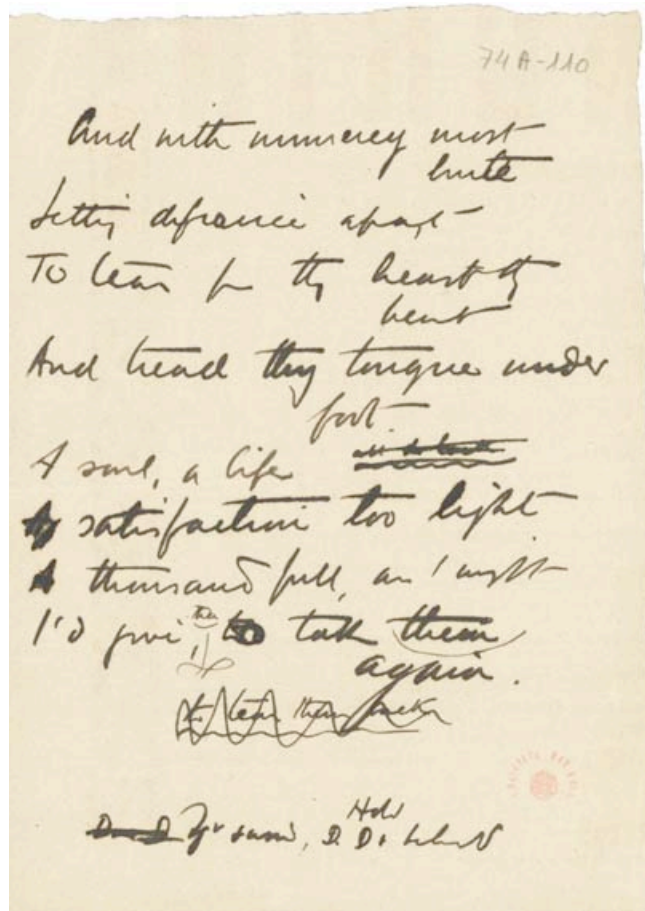 74A-110
And with usurency most
brute
Setting defiance apart
To tear for thy heart thy
heart
And tread thy tongue under
foot
A soul, a life
satisfaction too light
A thousand full, an I might
I'd give, then to take them
again.
to tear them back